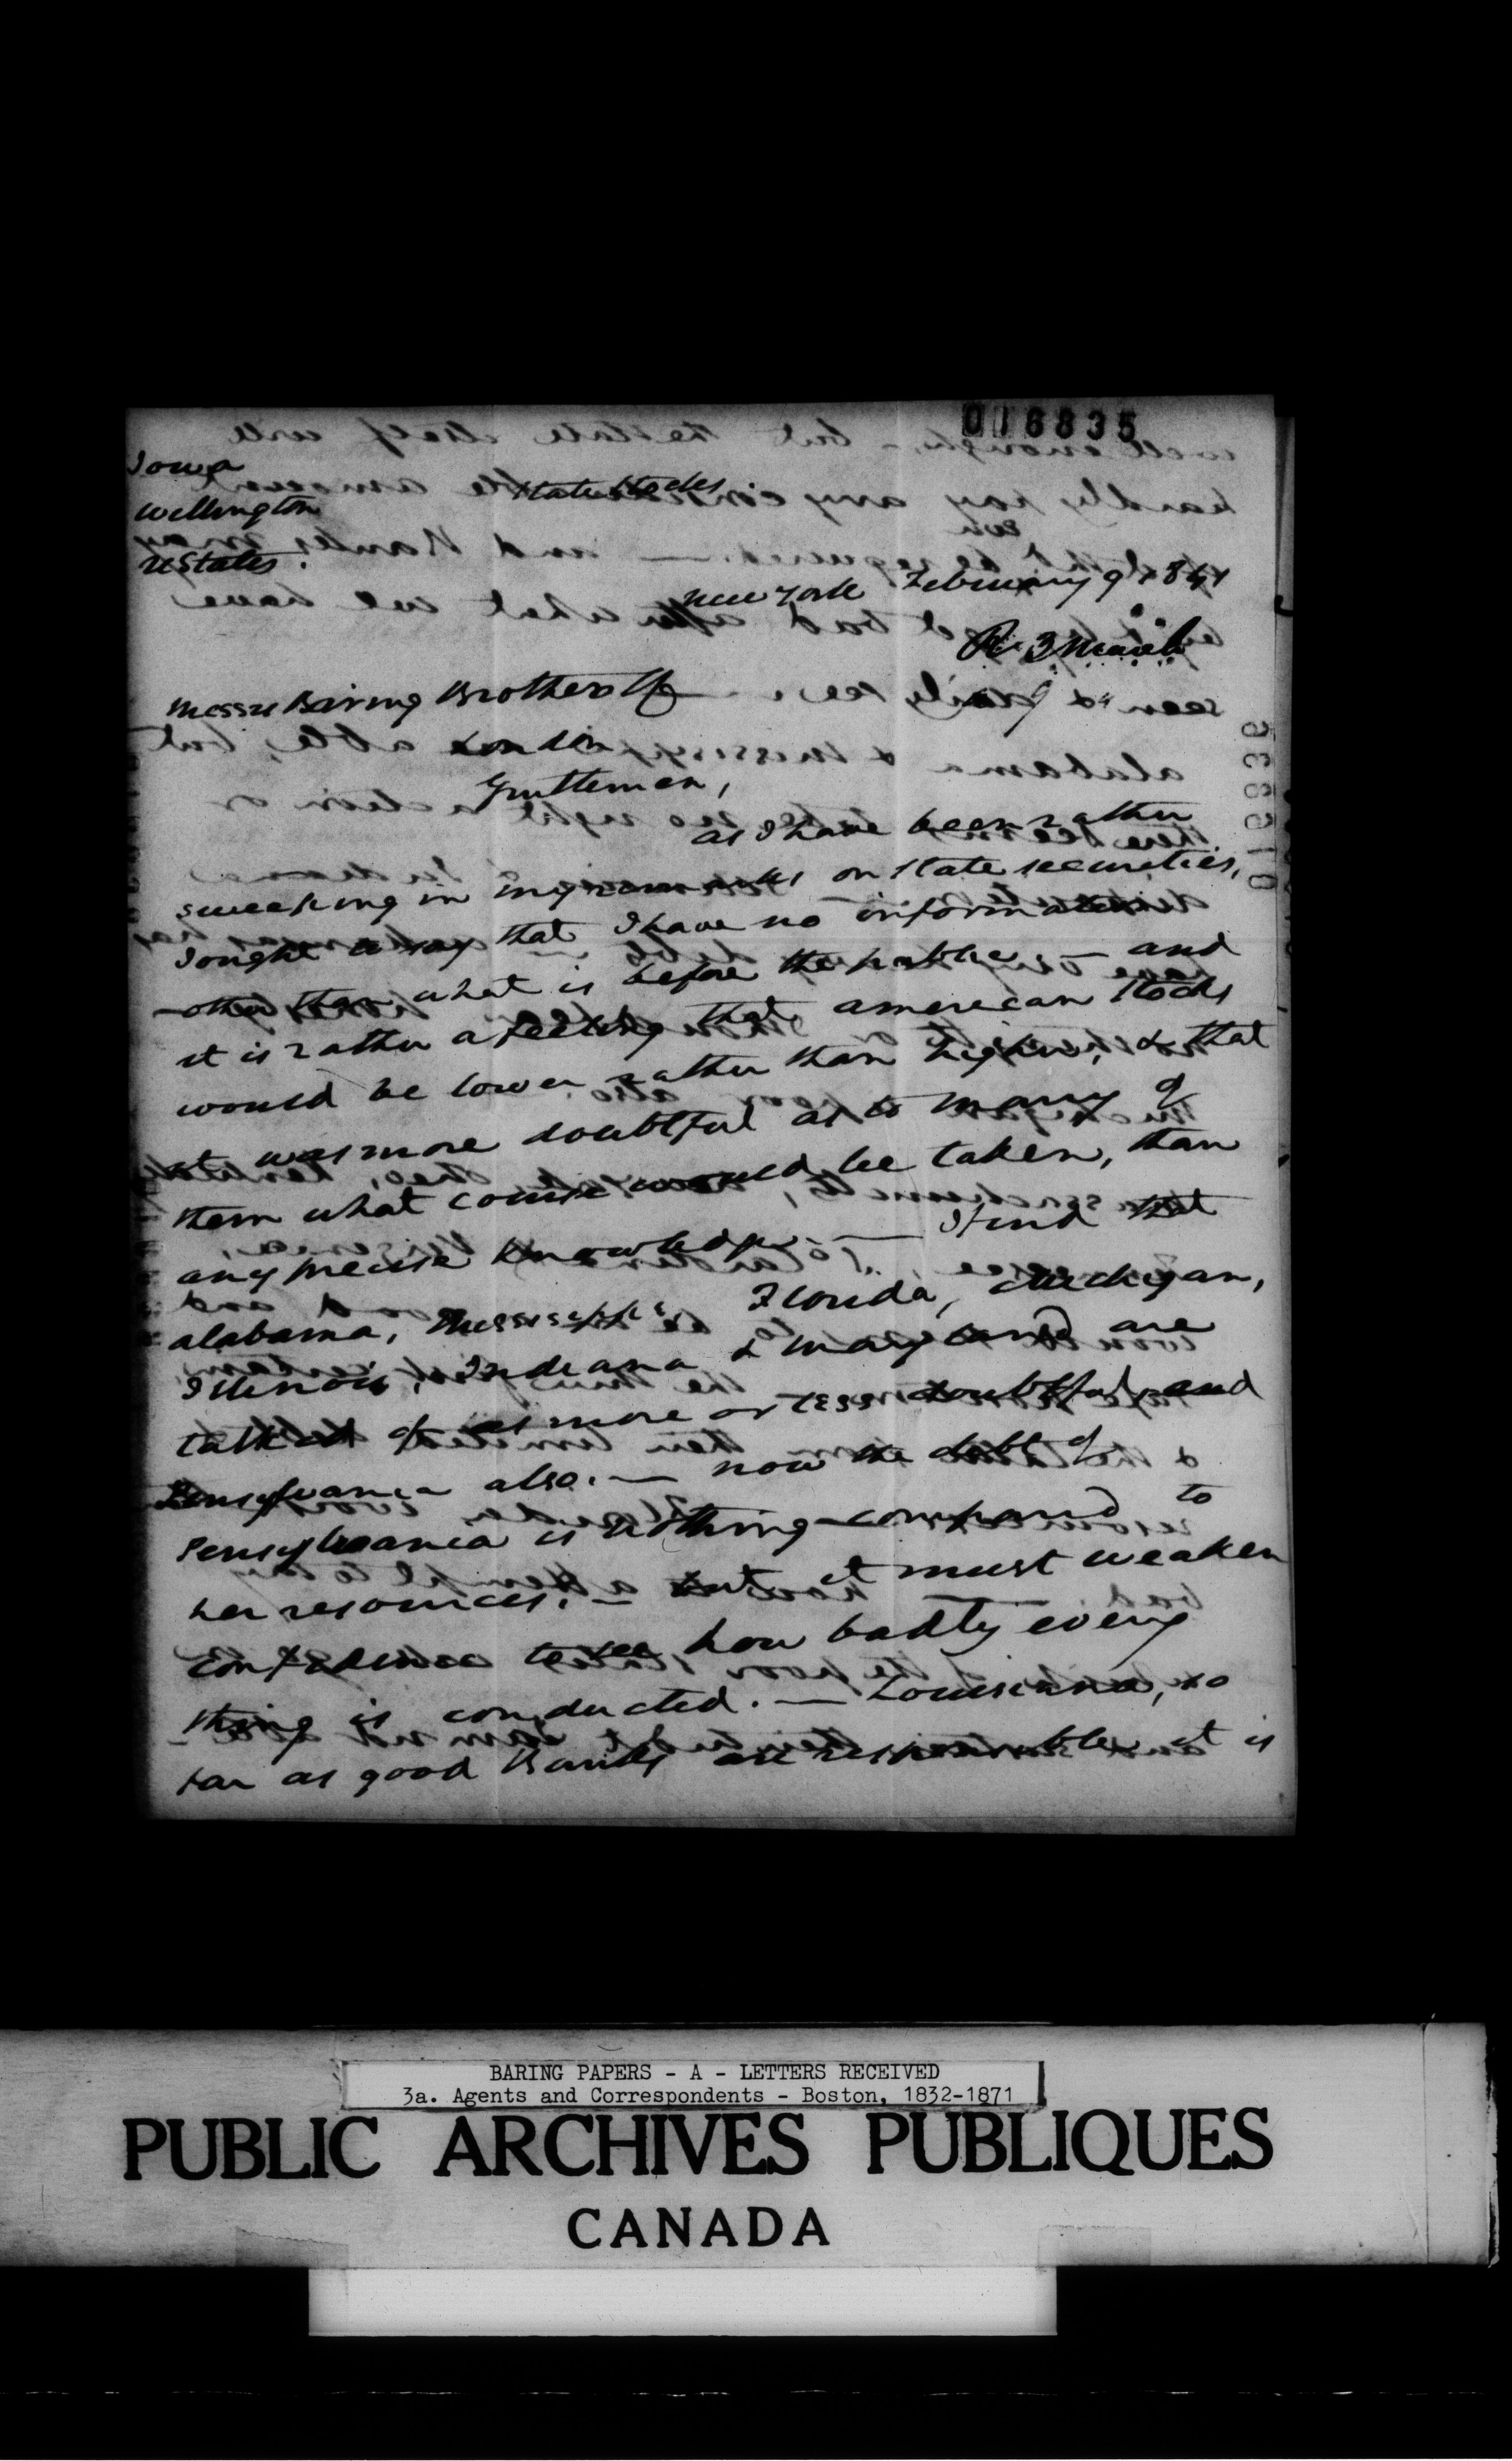 016835
Iowa
Wellington
UStates.
State Stocks
New York February 9 1841
R. 3 March
Messrs Baring Brothers & Co
London
Gentlemen,
as I have been rather
sweeping in my remarks on State securities,
I ought to say that I have no information
other than what is before the public — and
it is rather a feeling that american Stocks
would be lower rather than higher, & that
it was more doubtful as to many of
them what course would be taken, than
any precise knowledge. — I find that
alabama, Mississippi, Florida, Michigan,
Illinois, Indiana & Maryland are
talked of as more or less doubtful, and
Pensylvania also. — now the debt of
Pensylvania is nothing compared to
her resources. — but it must weaken
confidence to see how badly every
thing is conducted. — Louisiana, so
far as good Banks are responsible, it is
BARING PAPERS - A - LETTERS RECEIVED
3a. Agents and Correspondents - Boston, 1832-1871
PUBLIC ARCHIVES PUBLIQUES
CANADA